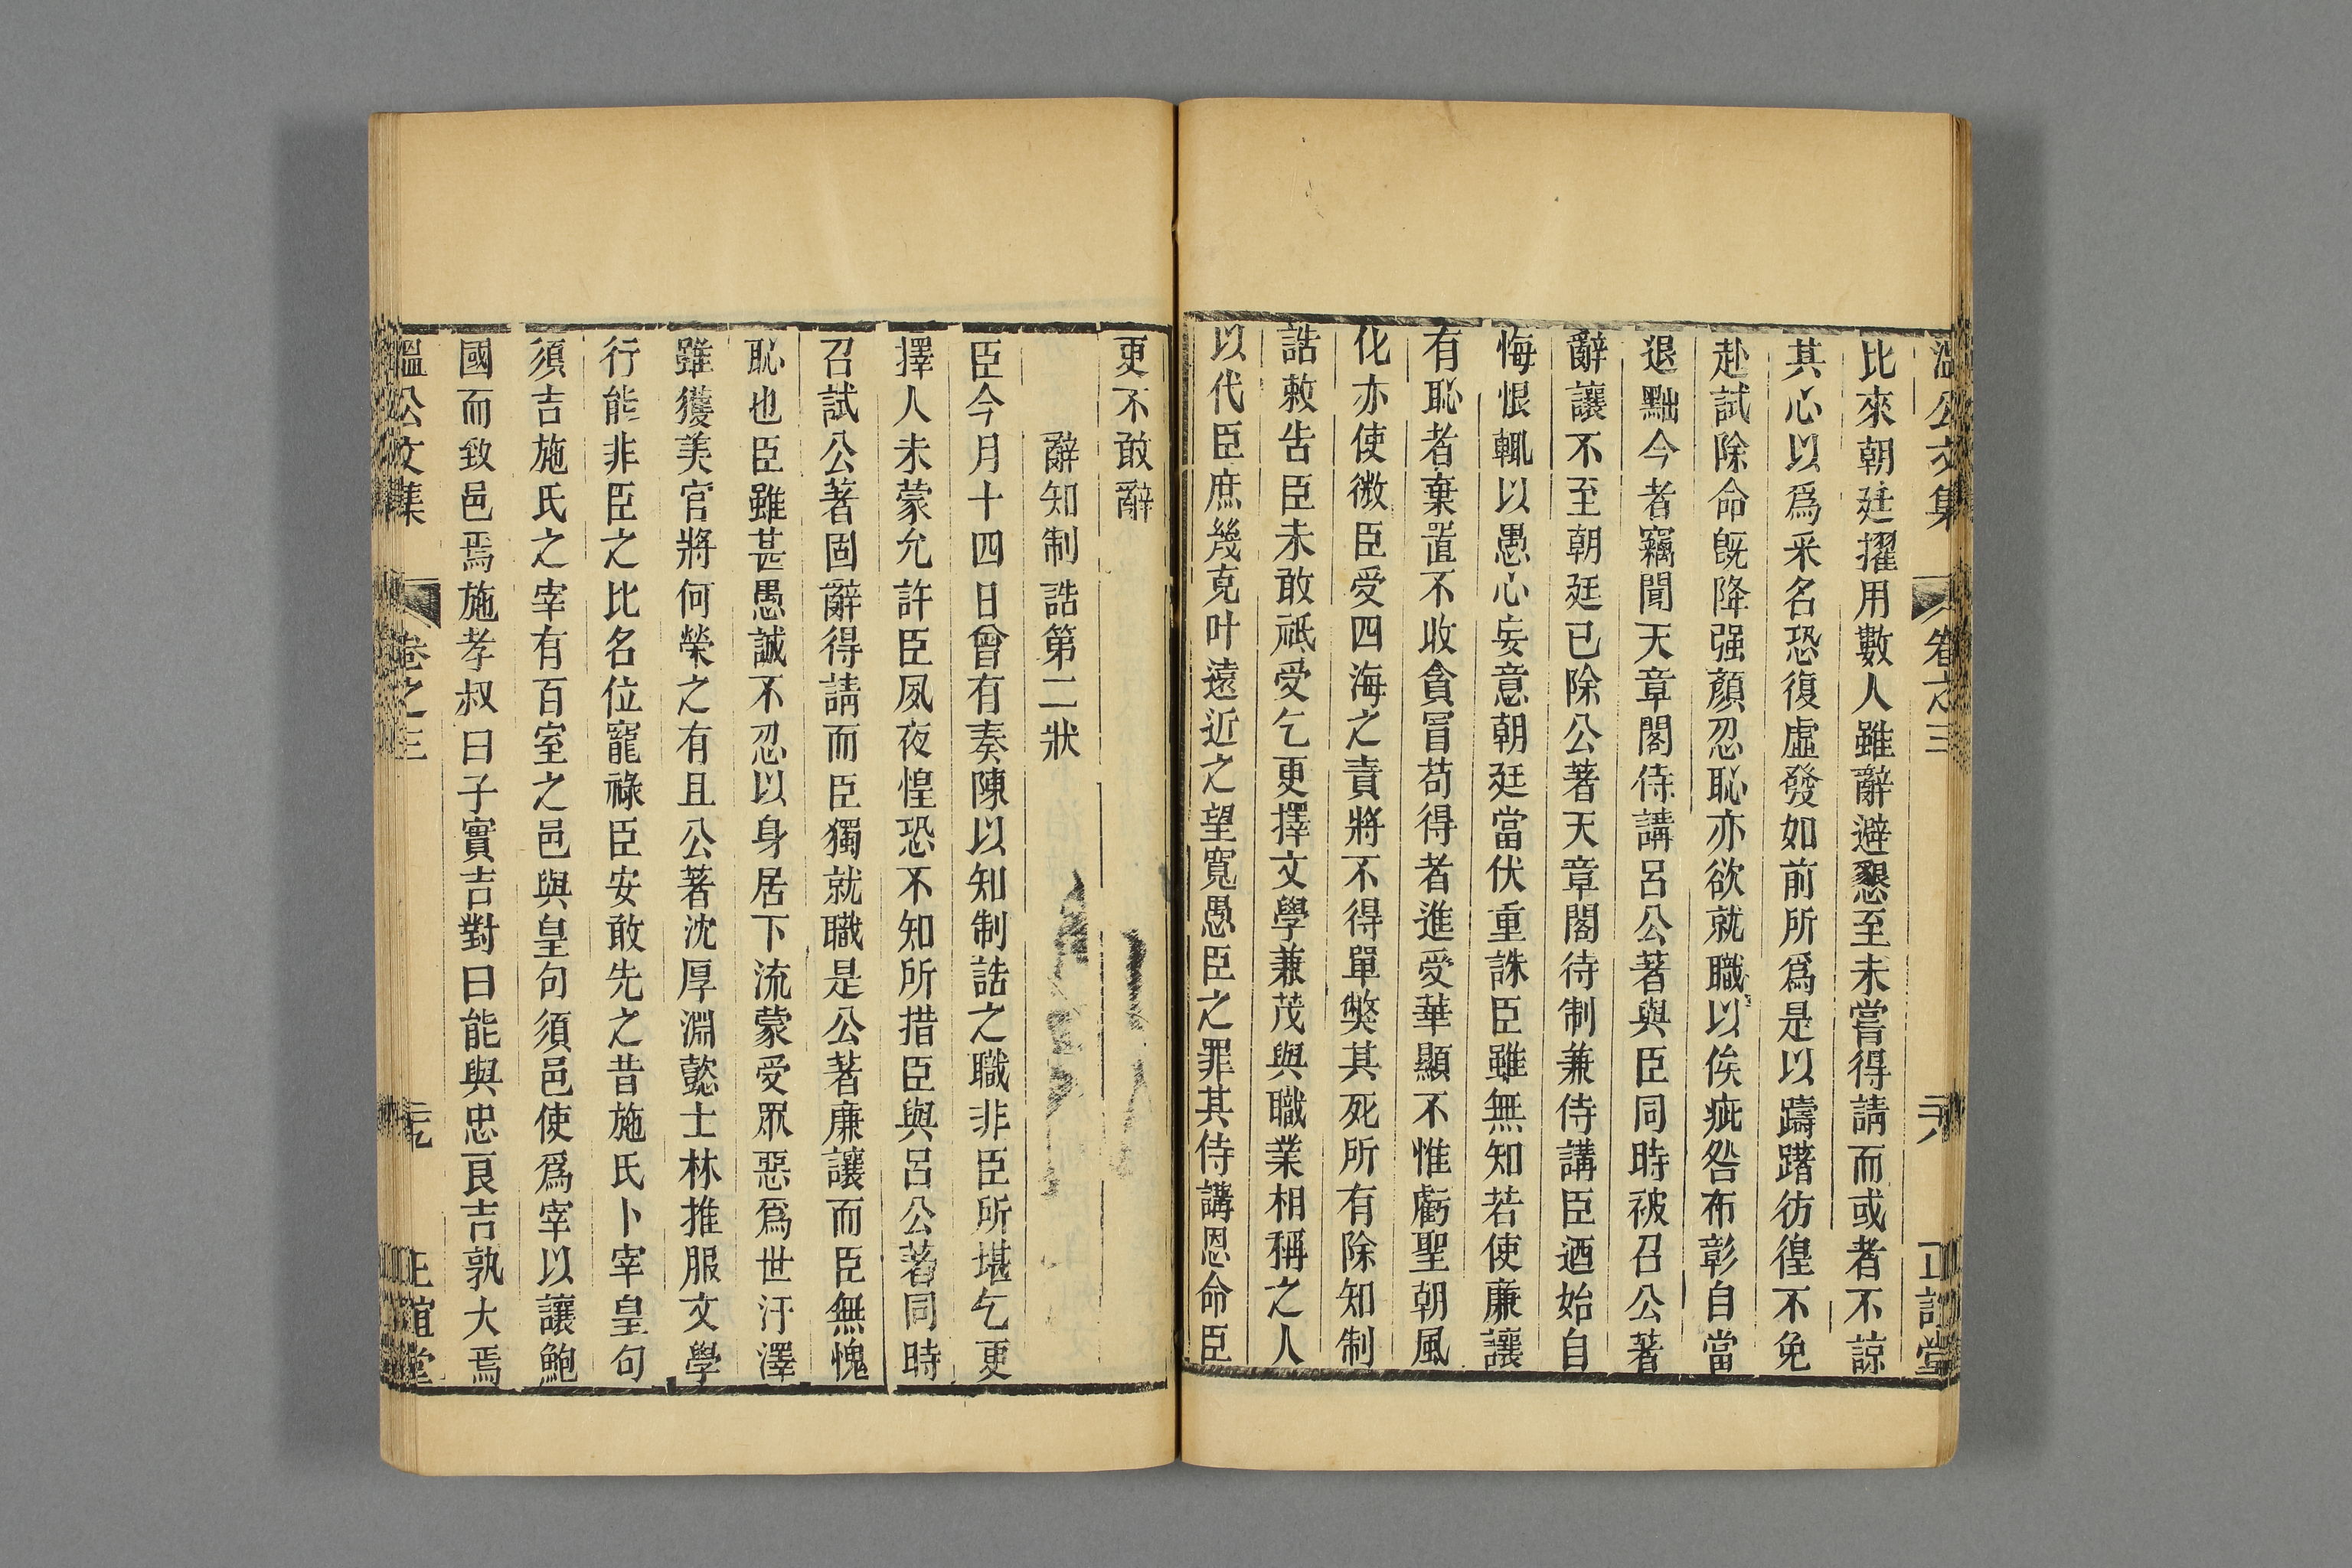 溫公文集 卷之三 二十八 正誼堂
比來朝廷擢用數人雖辭避懇至未嘗得請而或者不諒
其心以爲釆名恐復虛發如前所爲是以躊躇彷徨不免
赴試除命旣降强顏忍恥亦欲就職以俟疵咎布彰自當
退黜今者竊聞天章閣侍講呂公著與臣同時被召公著
辭讓不至朝廷已除公著天章閣待制兼侍講臣迺始自
悔恨輒以愚心妄意朝廷當伏重誅臣雖無知若使廉讓
有恥者棄置不收貪冒苟得者進受華顯不惟虧聖朝風
化亦使微臣受四海之責將不得單獘其死所有除知制
誥敕告臣未敢祗受乞更擇文學兼茂與職業相稱之人
以代臣庶幾克叶遠近之望寬愚臣之罪其侍講恩命臣
更不敢辭
辭知制誥第二狀
臣今月十四日曾有奏陳以知制誥之職非臣所堪乞更
擇人未蒙允許臣夙夜惶恐不知所措臣與呂公著同時
召試公著固辭得請而臣獨就職是公著廉讓而臣無愧
恥也臣雖甚愚誠不忍以身居下流蒙受眾惡爲世汙澤
雖獲美官將何榮之有且公著沈厚淵懿士林推服文學
行能非臣之比名位寵祿臣安敢先之昔施氏卜宰皇句
須吉施氏之宰有百室之邑與皇句須邑使爲宰以讓鮑
國而致邑焉施孝叔曰子實吉對曰能與忠良吉孰大焉
溫公文集 卷之三 二十九 正誼堂